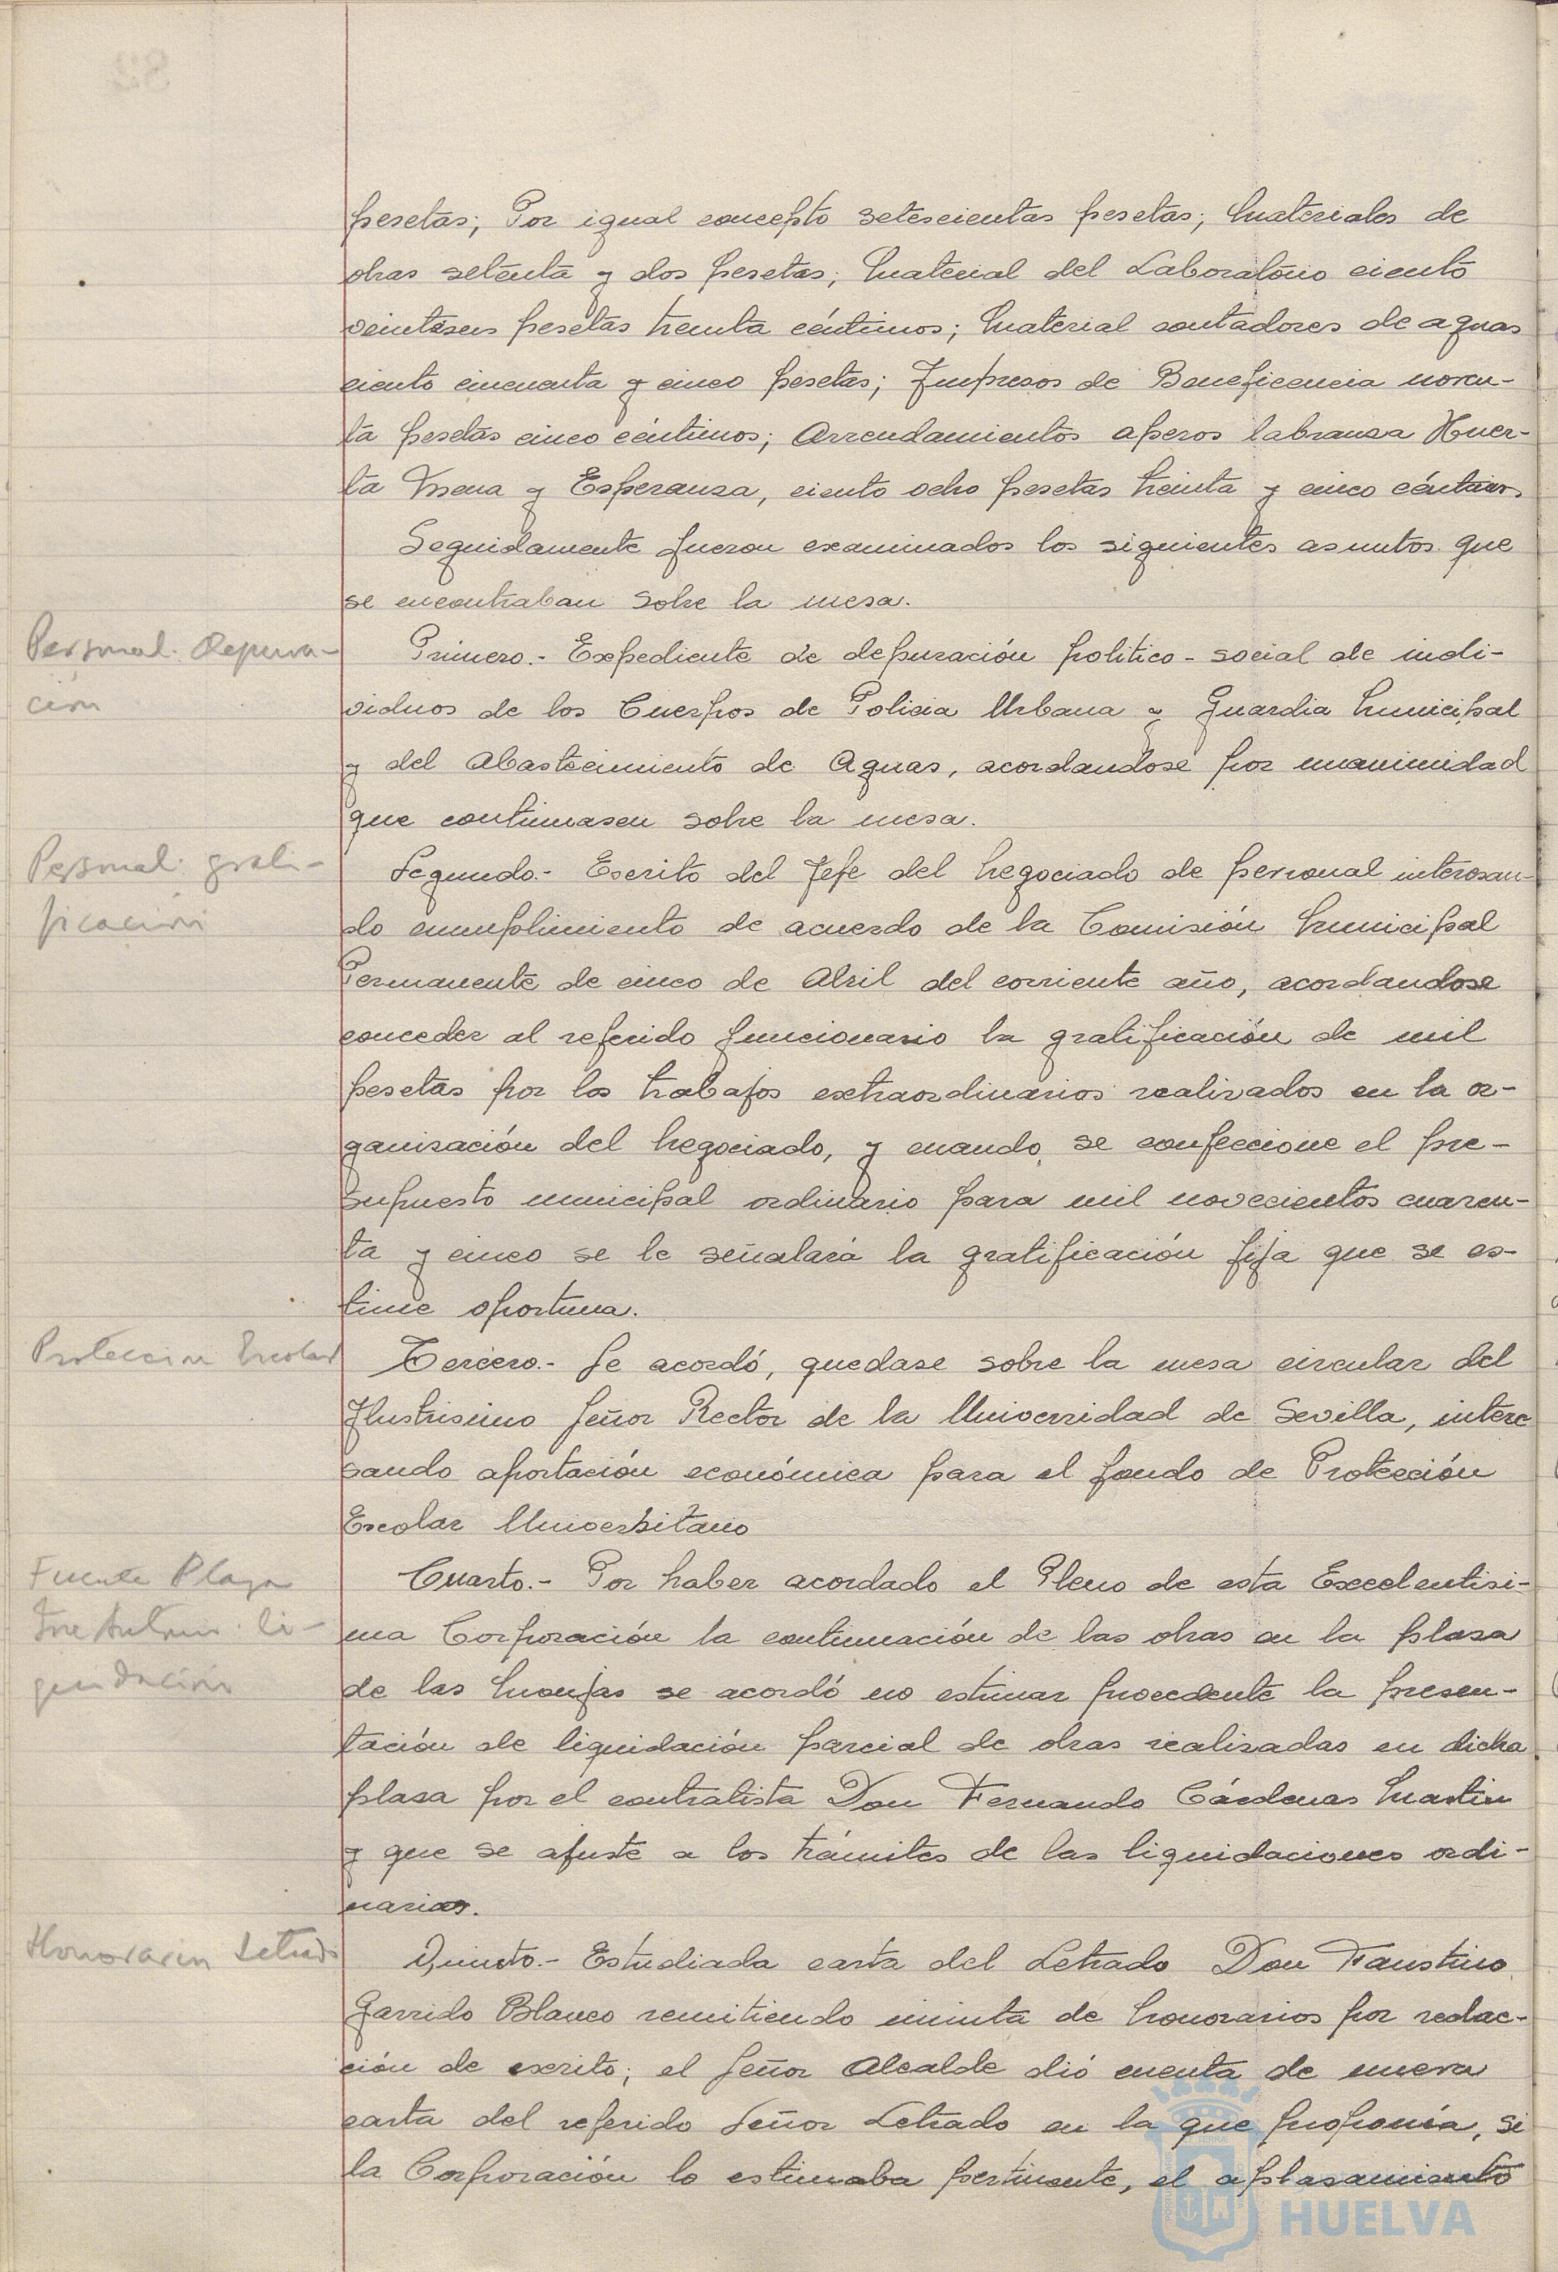 pesetas; Por igual concepto setescientas pesetas; Materiales de
obras setenta y dos pesetas; Material del Laboratorio ciento
veintiseis pesetas treinta céntimos; Material contadores de aguas
ciento cincuenta y cinco pesetas; Impresos de Beneficencia noven-
ta pesetas cinco céntimos; Arrendamientos aperos labranza Huer-
ta Mena y Esperanza, ciento ocho pesetas treinta y cinco céntimos.
Seguidamente fueron examinados los siguientes asuntos que
se encontraban sobre la mesa.
Personal. Depura-
ción
Primero.- Expediente de depuración politico-social de indi-
viduos de los Cuerpos de Policia Urbana y Guardia Municipal
y del Abastecimiento de Aguas, acordandose por unanimidad
que continuasen sobre la mesa.
Personal. grati-
ficación
Segundo.- Escrito del Jefe del Negociado de personal interesan-
do cumplimiento de acuerdo de la Comisión Municipal
Permanente de cinco de Abril del corriente año, acordandose
conceder al referido funcionario la gratificación de mil
pesetas por los trabajos extraordinarios realizados en la or-
ganización del Negociado, y cuando se confeccione el pre-
supuesto municipal ordinario para mil novecientos cuaren-
ta y cinco se le señalará la gratificación fija que se es-
time oportuna.
Proteccion Escolar
Tercero.- Se acordó, quedase sobre la mesa circular del
Ilustrisimo Señor Rector de la Universidad de Sevilla, intere
sando aportación económica para el fondo de Protección
Escolar Universitario
Fuente Plaza
Jose Antonio. li-
quidación
Cuarto.- Por haber acordado el Pleno de esta Excelentisi-
ma Corporación la continuación de las obras en la plaza
de las Monjas se acordó no estimar procedente la presen-
tación de liquidación parcial de obras realizadas en dicha
plaza por el contratista Don Fernando Cárdenas Martin
y que se ajuste a los trámites de las liquidaciones ordi-
narias.
Honorarios Letrado
Quinto.- Estudiada carta del Letrado Don Faustino
Garrido Blanco remitiendo minuta de honorarios por redac-
ción de escrito; el Señor Alcalde dió cuenta de nueva
carta del referido Señor Letrado en la que proponía, si
la Corporación lo estimaba pertinente, el aplazamiento
HUELVA